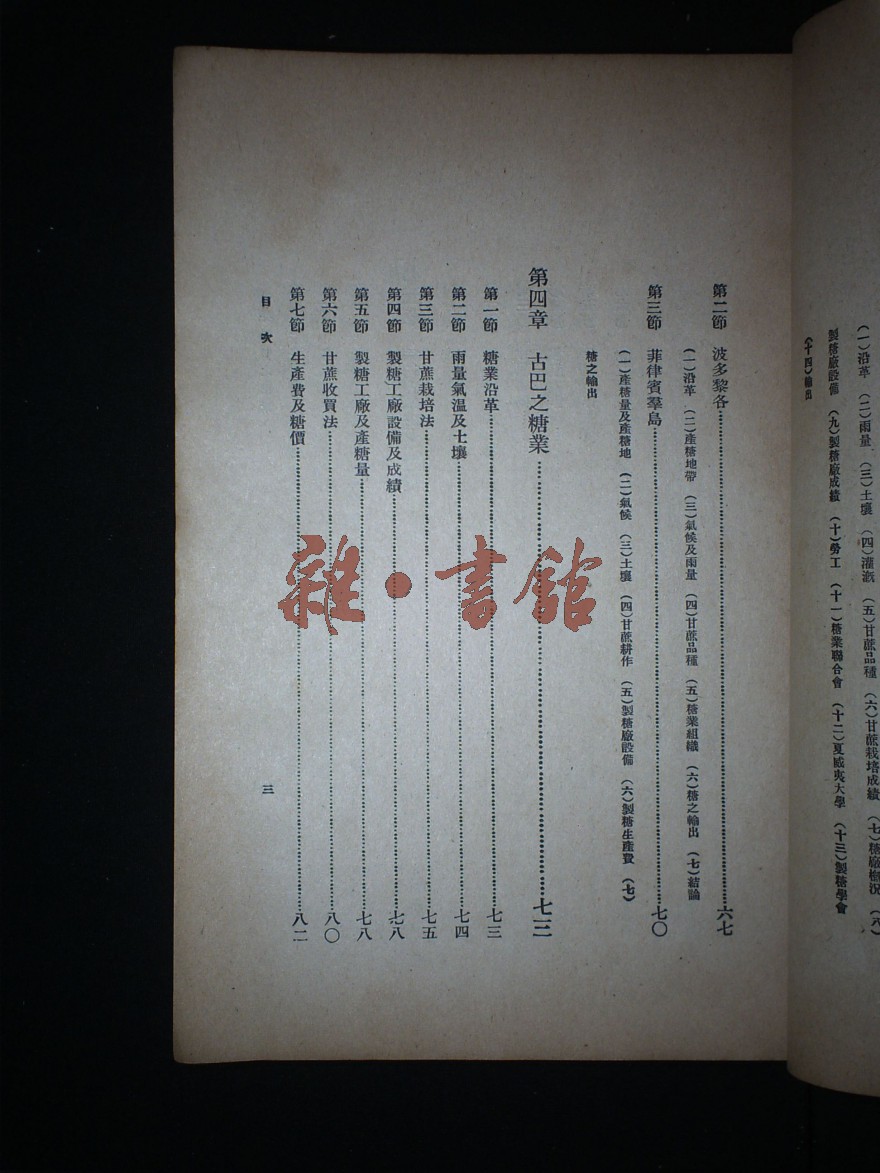 （一）沿革　（二）雨量　（三）土壤　（四）灌溉　（五）甘蔗品種　（六）甘蔗栽培成績　（七）糖廠概況　（八）
製糖廠設備　（九）製糖廠成績　（十）勞工　（十一）糖業聯合會　（十二）夏威夷大學　（十三）製糖學會
（十四）輸出
第二節　波多黎各……六七
（一）沿革　（二）產糖地帶　（三）氣候及雨量　（四）甘蔗品種　（五）糖業組織　（六）糖之輸出　（七）結論
第三節　菲律賓羣島……七〇
（一）產糖量及產糖地　（二）氣候　（三）土壤　（四）甘蔗耕作　（五）製糖廠設備　（六）製糖生產費　（七）
糖之輸出
第四章　古巴之糖業……七三
第一節　糖業沿革……七三
第二節　雨量氣温及土壤……七四
第三節　甘蔗栽培法……七五
第四節　製糖工廠設備及成績……七八
第五節　製糖工廠及產糖量……七八
第六節　甘蔗收買法……八〇
第七節　生產費及糖價……八二
目次
三
雜·書館